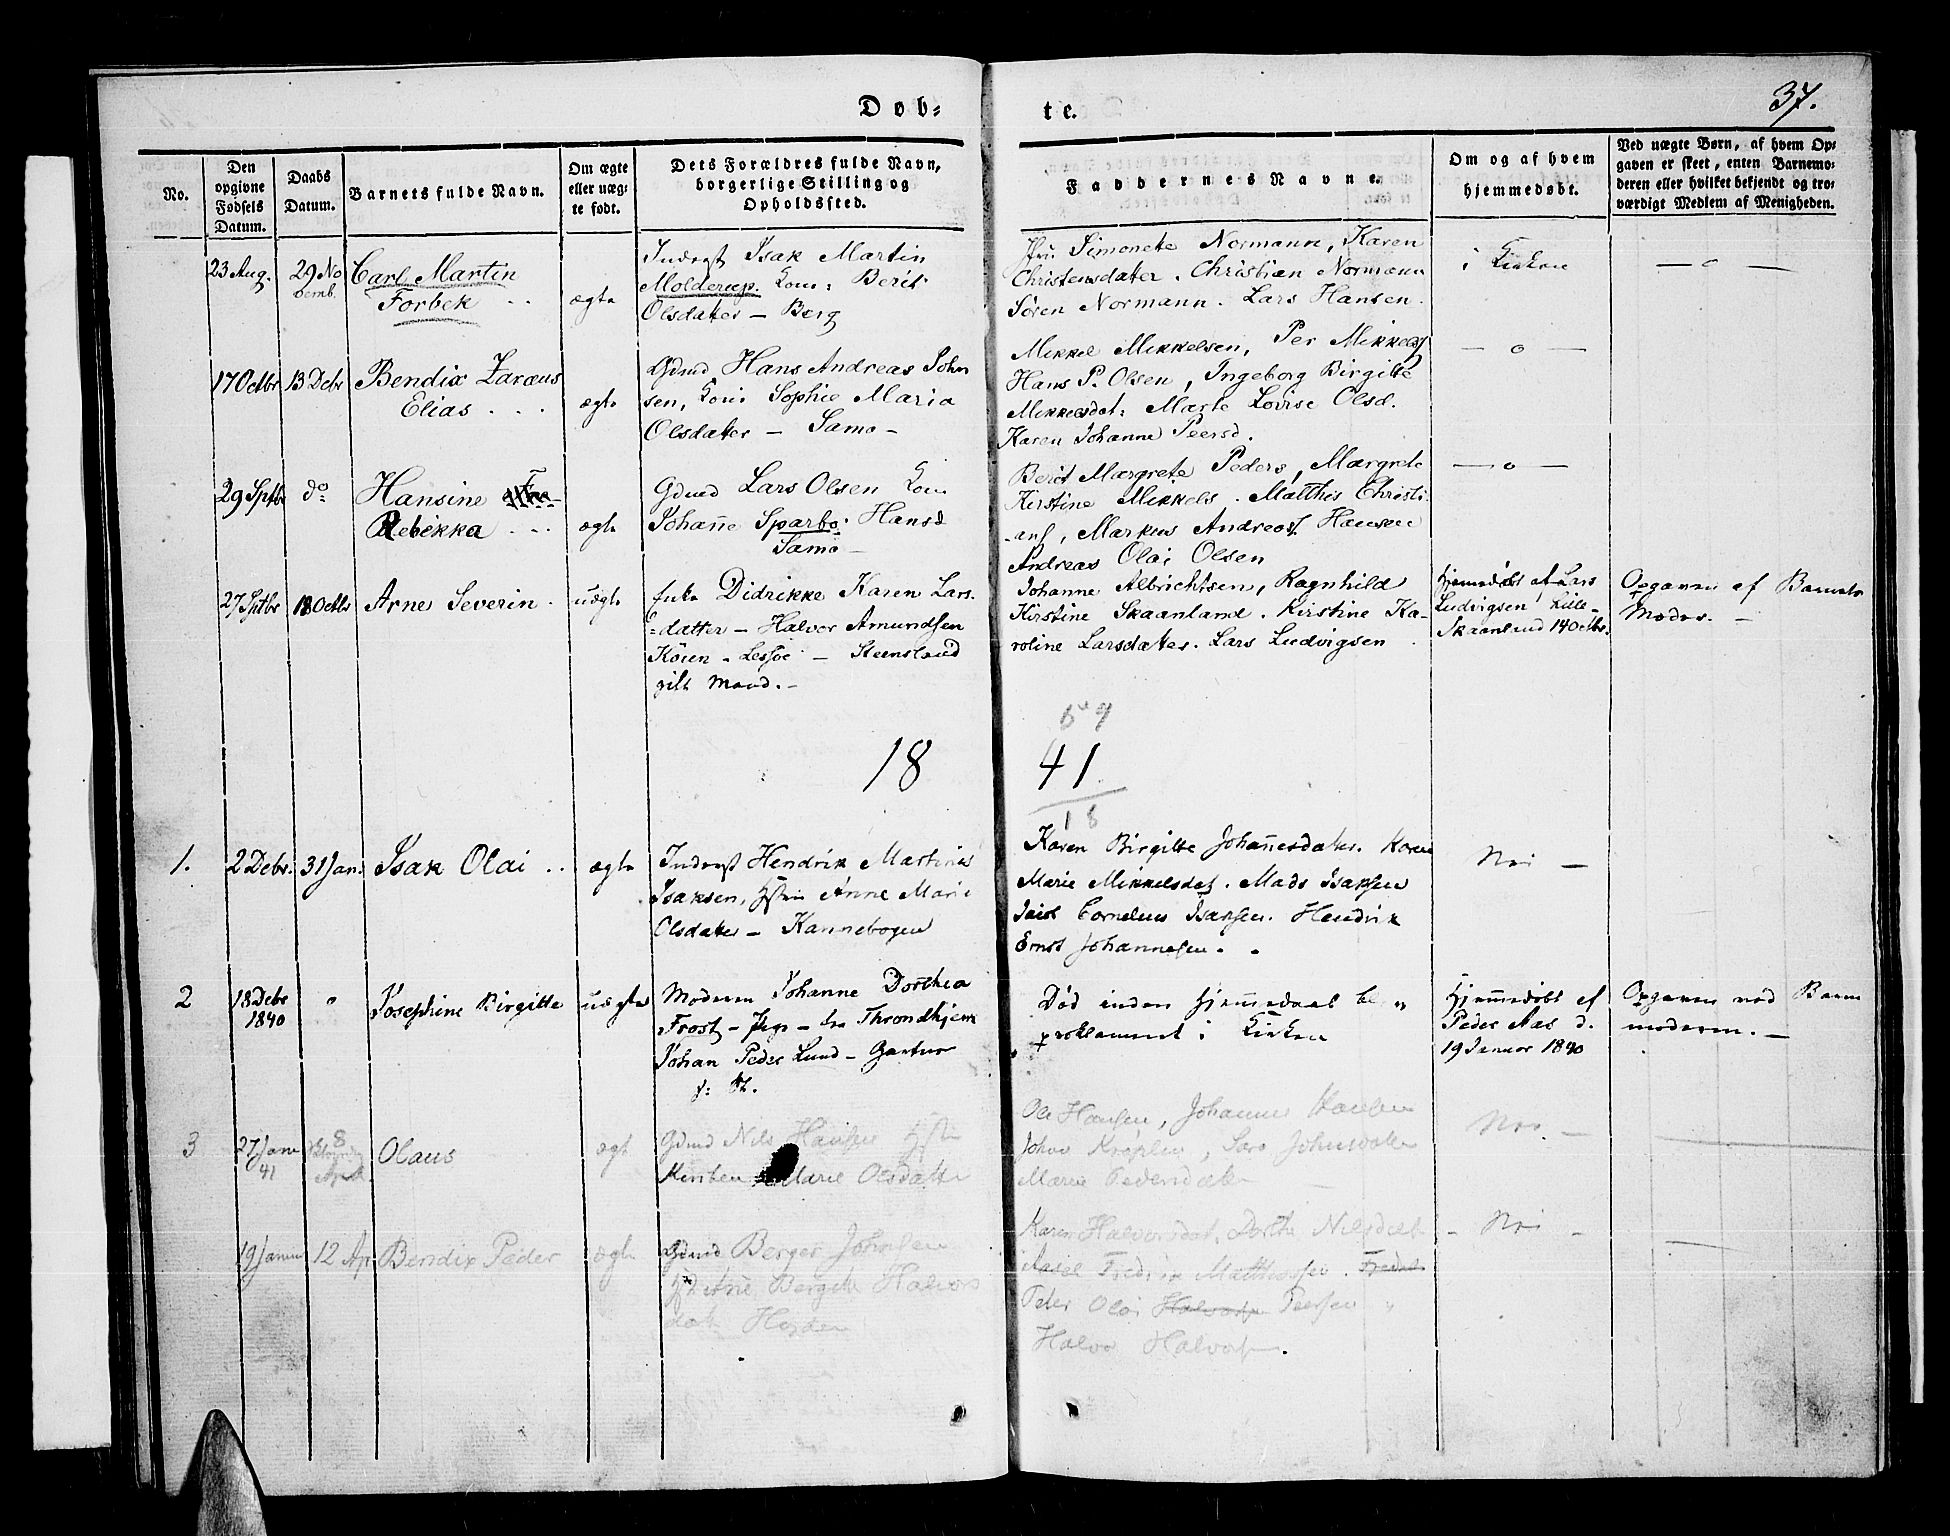 Døb-
te.
37.
No.
Den
opgivne
Fødsels
Datum.
Daabs
Datum.
Barnets fulde Navn.
Om ægte
eller uæg-
te født.
Dets Forældres fulde Navn,
borgerlige Stilling og
Opholdssted.
Faddernes Navne.
Om og af hvem
hjemmedøbt.
Ved uægte Børn, af hvem Op-
gaven er skeet, enten Barnemo-
deren eller hvilket bekjendt og tro-
værdigt Medlem af Menigheden.
23 Aug.
29 No
vemb.
Carl Martin
Forbek
ægte
Inderst Isak Martin
Molderup. Kone: Berit
Olsdatter – Berg
Simonete Normann, Karen
Christensdatter. Christian Normann
Sören Normann. Lars Hansen.
i Kirken
— o —
17 Octbr
13 Debr
Bendix Zaræus
Elias
ægte
Gdmd Hans Andreas John
sen, Kone Sophie Maria
Olsdatter – Samo –
Mikkel Mikkelsen, Per Mikkels
Hans P. Olsen, Ingeborg Birgitte
Mikkelsdat: Marte Lovise Olsd.
Karen Johanne Peersd.
— o —
29 Sptbr
do
Hansine
Rebekka
ægte
Gdmd Lars Olsen Kone
Johanne Sparbo: Hansd
Samo –
Berit Margrete Peders, Margrete
Kirstine Mikkels. Matthis Christi
ans, Markus Andreas Hansen
Andreas Olai Olsen
— o —
27 Sptbr
18 Octbr
Arne Severin
uægte
Enke Didrikke Karen Lars
datter – Halvor Amundsen
– Lessöe – Steensland
gift Mand. –
Johanne Albrichtsen, Ragnhild
Kirstine Skaanland. Kirstine Ka-
roline Larsdatter. Lars Ludvigsen
Hjemedöbt af Lars
Ludvigsen Lille-
Skaanland 14 Octbr.
Opgaven af Barnets
Moder. –
18
41
18
1.
2 Debr.
31 Jan.
Isak Olai
ægte
Inderst Hendrik Martinus
Isaksen, Hstru Anne Marie
Olsdatter – Kannebogen
Karen Birgitte Johannesdatter. Karen
Marie Mikkelsdat. Mads Isaksen
Cornelius Isaksen. Hendrik
Ernst Johannesen.
Nei –
2
18 Debr
1840
o
Josephine Birgitte
uægte
Moderen Johanne Dorthea
Frost – Pige – fra Throndhjem
Johan Peder Lund – Gartner
Död inden hjemmedaab be
proklameret i Kirken
Hjemmedöbt af
Peder Aas d.
19 Januar 1840
Opgaven ved Barne
moderen. –
3
27 Janu
41
8
Olaus
ægt
Gdmd Nils Hansen Hstru
Kirsten Marie Olsdatter
Ole Hansen, Johannes Hansen
Johan, Sara Johnsdatter
Marie Pedersdatter
Nei –
19 Janu
12 Ap
Bendix Peder
ægte
Gdmd Berger Johnsen
Ane Bergite Halvors
dat
Karen Halvorsdat, Dorthe Nilsdat
Fredrik Matthiasen.
Peter Olai Halvorsen Peersen
Halvor Halvorsen.
– Nei –